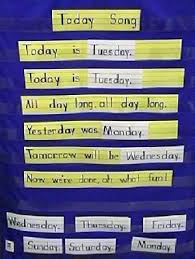 Today Song
Today is Tuesday.
Today is Tuesday.
All day long, all day long.
Yesterday was Monday.
Tomorrow will be Wednesday.
Now we're done, oh what fun!
Wednesday. Thursday. Friday.
Sunday. Saturday. Monday.